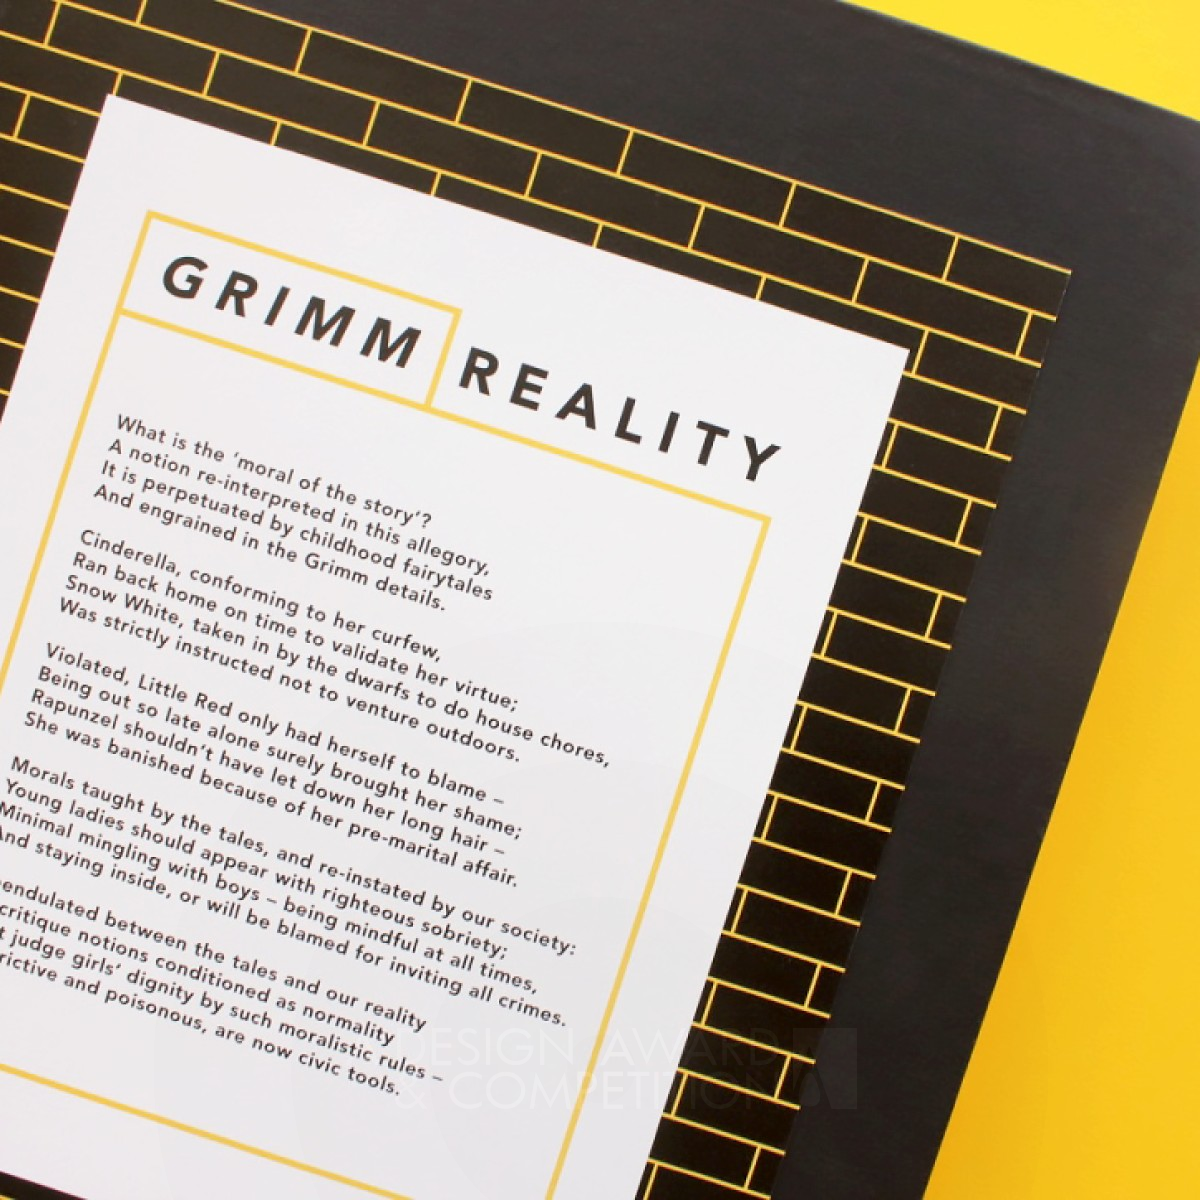 GRIMM REALITY
What is the ‘moral of the story’?
A notion re-interpreted in this allegory,
It is perpetuated by childhood fairytales
And engrained in the Grimm details.
Cinderella, conforming to her curfew,
Ran back home on time to validate her virtue;
Snow White, taken in by the dwarfs to do house chores,
Was strictly instructed not to venture outdoors.
Violated, Little Red only had herself to blame –
Being out so late alone surely brought her shame;
Rapunzel shouldn’t have let down her long hair –
She was banished because of her pre-marital affair.
Morals taught by the tales, and re-instated by our society:
Young ladies should appear with righteous sobriety;
Minimal mingling with boys – being mindful at all times,
And staying inside, or will be blamed for inviting all crimes.
between the tales and our reality
critique notions conditioned as normality
judge girls’ dignity by such moralistic rules –
and poisonous, are now civic tools.
DESIGN AWARD
& COMPETITION